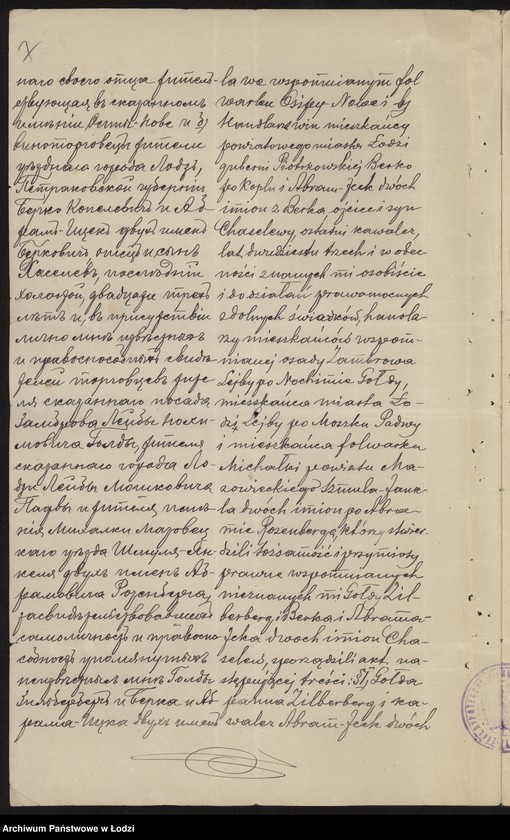 наго своего отца, житель-
ствующая въ сказанномъ
имѣніи Новe и б)
виноторговцы жители
уѣзднаго города Лодзь,
Петраковской губерніи
Берко Копелевичъ и Аб-
рамъ-Ицекъ двухъ именъ
Берковичъ отецъ и сынъ
Хаселевъ, послѣдній
холостой, двадцати трехъ
лѣтъ и, въ присутствіи
лично мнѣ извѣстныхъ
и правоспособныхъ свидѣ-
телей торговцевъ жите-
ля сказаннаго посада
Замброва Лейбы Нохи-
мовича Голды, жителя
сказаннаго города Ло-
дзи Лейбы Мошковича
Падвы и жителя имѣ-
нія Михалки Мазовец-
каго уѣзда Шмуля-Ян-
келя двухъ именъ Аб-
рамовича Розенберга,
засвидѣтельствовавшихъ
самоличность и правоспо-
собность упомянутыхъ
неизвѣстныхъ мнѣ Голды
Зильбербергъ и Берка и Аб-
рама-Ицка двухъ именъ
la we wspomnianym fol
warku Nowe i b)
Handlarze win mieszkańcy
powiatowego miasta Łodzi
guberni Piotrkowskiej Berko
po Koplu i Abram-Icek dwóch
imion z Berka ojciec i syn
Chaselewy, ostatni kawaler,
lat dwadzieścia trzech i w obec-
ności znanych mi osobiście
i do działań prawomocnych
zdolnych świadków, handla-
rzy mieszkańców wspom-
nianej osady Zambrowa
Lejby po Nochimie Gołdy,
mieszkańca miasta Ło-
dzi Lejby po Moszku Padwy
i mieszkańca folwarku
Michałki powiatu Ma-
zowieckiego Szmula-Jank-
la dwóch imion po Abra-
mie Rozenberga, którzy stwier-
dzili tożsamość i przymioty
prawne wspomnianych
nieznanych mi Gołdy Zil-
berberg i Berka i Abrama-
Icka dwóch imion Cha-
selew, sporządzili akt na-
stępującej treści: §1, Gołda
panna Zilberberg i ka-
waler Abram-Icek dwóch
Archiwum Państwowe w Łodzi